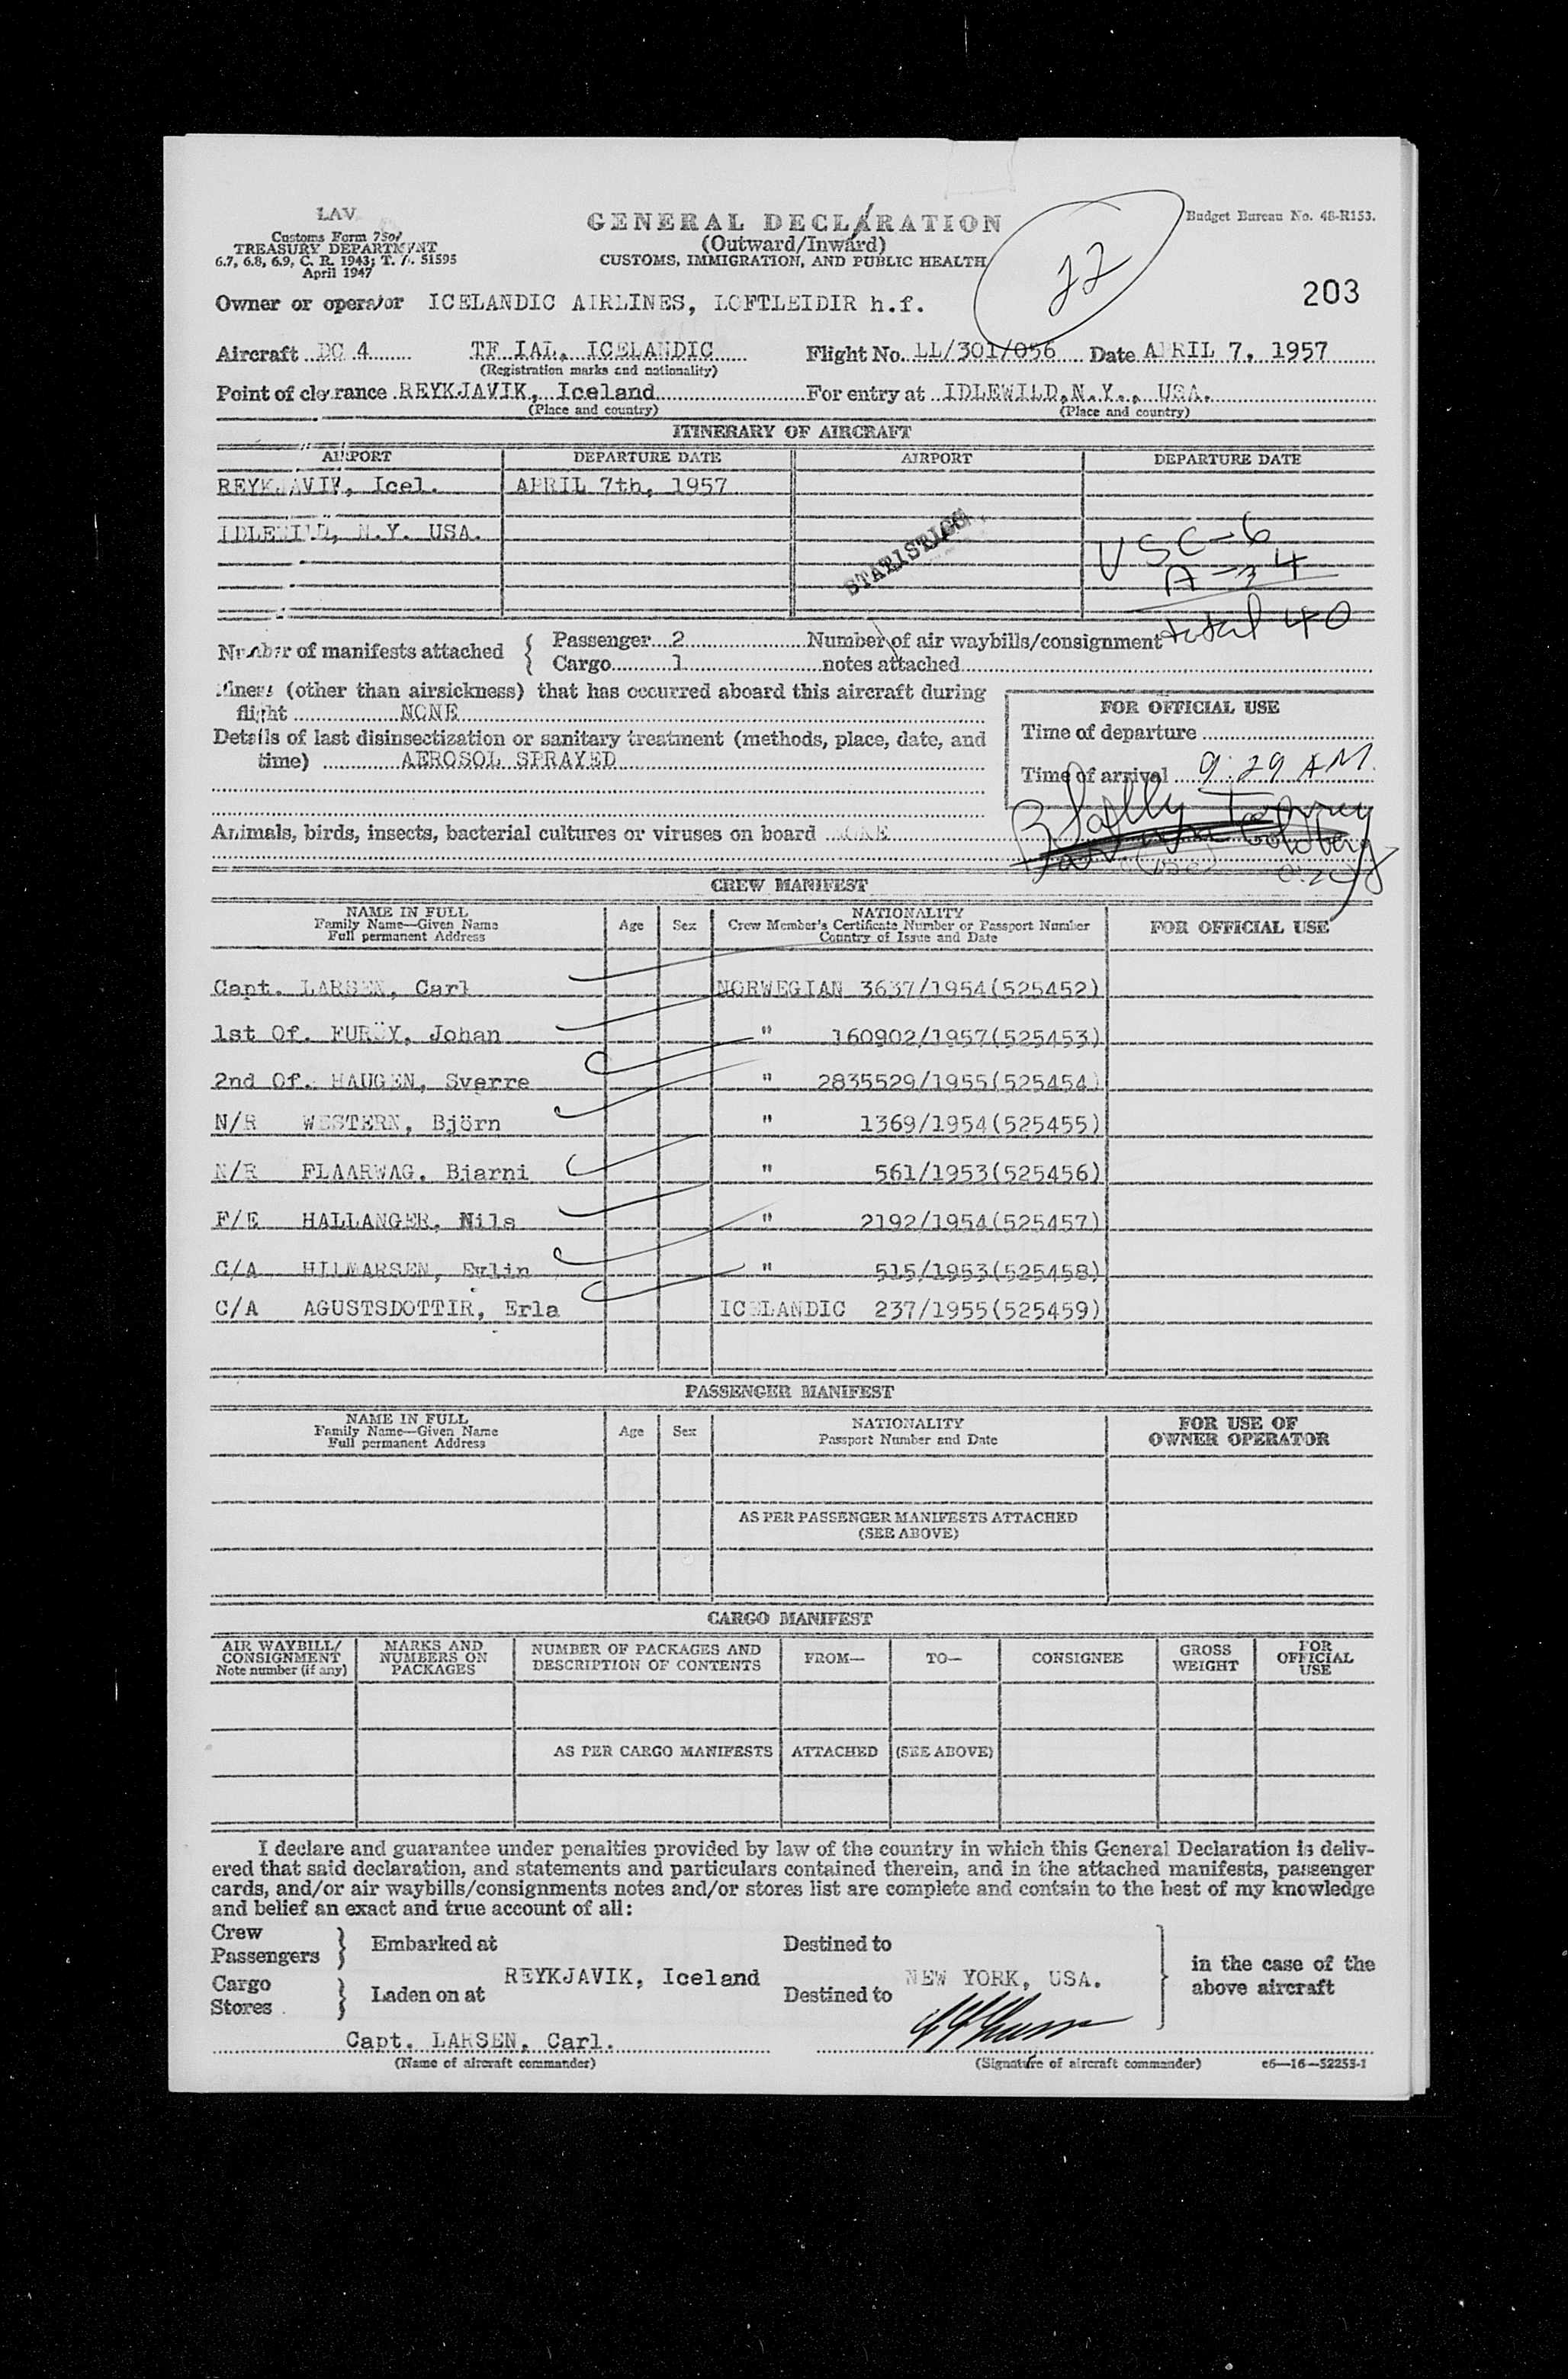 LAV
Customs Form 7507
TREASURY DEPARTMENT
6.7, 6.8, 6.9, C. R. 1943; T. D. 51595
April 1947
GENERAL DECLARATION
(Outward/Inward)
CUSTOMS, IMMIGRATION, AND PUBLIC HEALTH
Budget Bureau No. 48-R153.
22
203
Owner or operator ICELANDIC AIRLINES, LOFTLEIDIR h.f.
Aircraft DC 4 TF IAL, ICELANDIC Flight No. LL/301/056 Date APRIL 7, 1957
(Registration marks and nationality)
Point of clearance REYKJAVIK, Iceland For entry at IDLEWILD, N.Y., USA.
(Place and country) (Place and country)
ITINERARY OF AIRCRAFT
AIRPORT DEPARTURE DATE AIRPORT DEPARTURE DATE
REYKJAVIK, Icel. APRIL 7th, 1957
IDLEWILD, N.Y. USA.
STATISTICS
USC-6
A-34
total 40
Number of manifests attached { Passenger 2 Number of air waybills/consignment
Cargo 1 notes attached
Illness (other than airsickness) that has occurred aboard this aircraft during
flight NONE
Details of last disinsectization or sanitary treatment (methods, place, date, and
time) AEROSOL SPRAYED
FOR OFFICIAL USE
Time of departure
Time of arrival 9:29 AM
Animals, birds, insects, bacterial cultures or viruses on board NONE
CREW MANIFEST
NAME IN FULL
Family Name—Given Name
Full permanent Address
Age Sex
NATIONALITY
Crew Member's Certificate Number or Passport Number
Country of Issue and Date
FOR OFFICIAL USE
Capt. LARSEN, Carl NORWEGIAN 3637/1954(525452)
1st Of. FURÖY, Johan " 160902/1957(525453)
2nd Of. HAUGEN, Sverre " 2835529/1955(525454)
N/R WESTERN, Björn " 1369/1954(525455)
N/R FLAARWAG, Bjarni " 561/1953(525456)
F/E HALLANGER, Nils " 2192/1954(525457)
C/A HILMARSEN, Evlin " 515/1953(525458)
C/A AGUSTSDOTTIR, Erla ICELANDIC 237/1955(525459)
PASSENGER MANIFEST
NAME IN FULL
Family Name—Given Name
Full permanent Address
Age Sex
NATIONALITY
Passport Number and Date
FOR USE OF
OWNER OPERATOR
AS PER PASSENGER MANIFESTS ATTACHED
(SEE ABOVE)
CARGO MANIFEST
AIR WAYBILL/
CONSIGNMENT
Note number (if any)
MARKS AND
NUMBERS ON
PACKAGES
NUMBER OF PACKAGES AND
DESCRIPTION OF CONTENTS
FROM—
TO—
CONSIGNEE
GROSS
WEIGHT
FOR
OFFICIAL
USE
AS PER CARGO MANIFESTS ATTACHED (SEE ABOVE)
I declare and guarantee under penalties provided by law of the country in which this General Declaration is deliv-
ered that said declaration, and statements and particulars contained therein, and in the attached manifests, passenger
cards, and/or air waybills/consignments notes and/or stores list are complete and contain to the best of my knowledge
and belief an exact and true account of all:
Crew
Passengers } Embarked at Destined to
REYKJAVIK, Iceland NEW YORK, USA.
Cargo
Stores } Laden on at Destined to
in the case of the
above aircraft
Capt. LARSEN, Carl.
(Name of aircraft commander) (Signature of aircraft commander) c6—16—52253-1